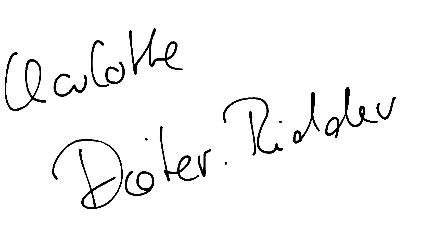 Charlotte
Dörter. Ridder